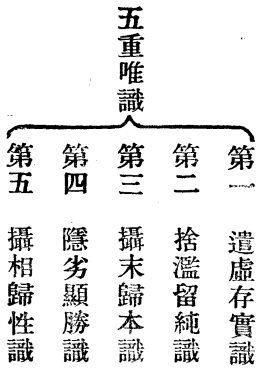 五重唯識
第一　遣虛存實識
第二　捨濫留純識
第三　攝末歸本識
第四　隱劣顯勝識
第五　攝相歸性識